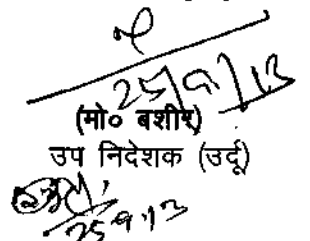 25/9/13
(मो० बशीर)
उप निदेशक (उर्दू)
25.9.13